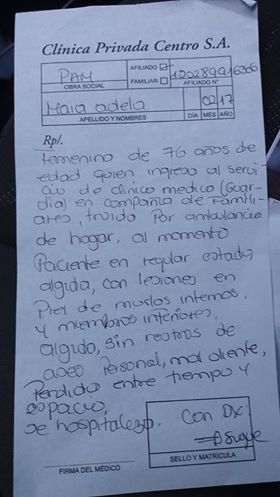 Clínica Privada Centro S.A.
PAM
AFILIADO
FAMILIAR
OBRA SOCIAL
AFILIADO Nº
Maia adela
02 17
APELLIDO Y NOMBRES
DÍA MES AÑO
Rp/.
Femenino de 76 años de
edad quien ingresa al servi-
cio de clinica medica (Guar-
dia) en compañia de Famili-
ares, traido Por ambulancia
de hogar, al momento
Paciente en regular estado
algida, con lesiones en
Piel de muslos internos
y miembros inferiores,
algido, sin rastros de
aseo Personal, mal oliente,
Perdido entre tiempo y
espacio,
se hospitaliza.
Con Dx:
FIRMA DEL MÉDICO
SELLO Y MATRÍCULA